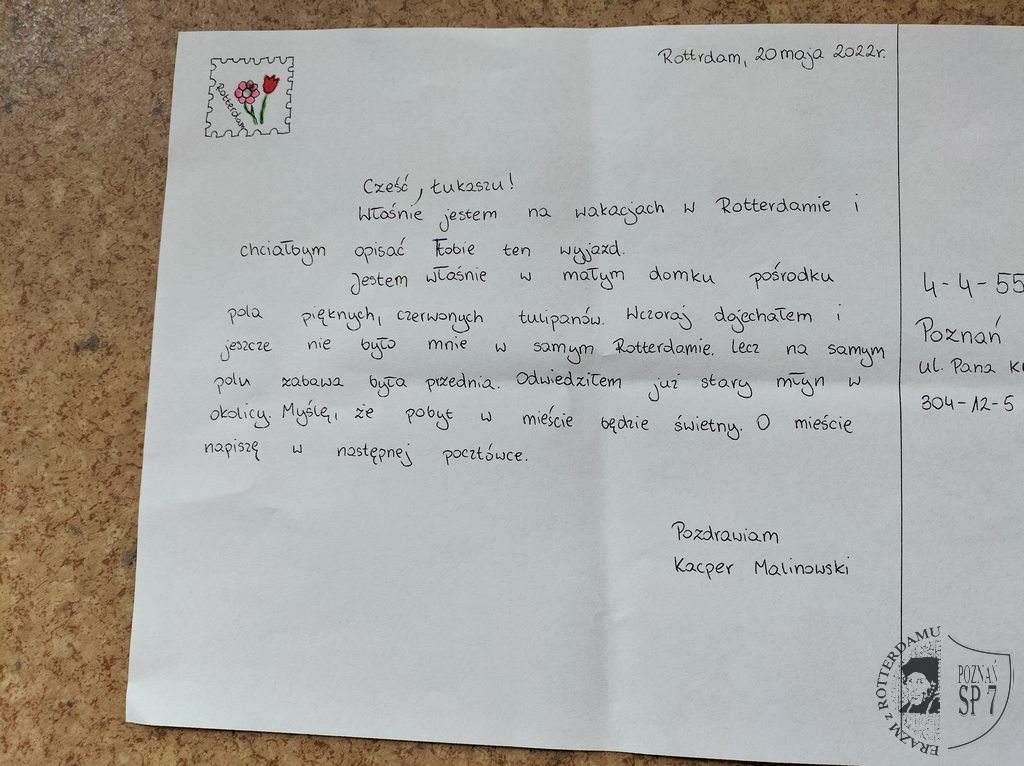 Rottrdam, 20 maja 2022r.
Rotterdam
Cześć, Łukaszu!
Właśnie jestem na wakacjach w Rotterdamie i
chciałbym opisać Tobie ten wyjazd.
Jestem właśnie w małym domku pośrodku
pola pięknych, czerwonych tulipanów. Wczoraj dojechałem i
jeszcze nie było mnie w samym Rotterdamie. Lecz na samym
polu zabawa była przednia. Odwiedziłem już stary młyn w
okolicy. Myślę, że pobyt w mieście będzie świetny. O mieście
napiszę w następnej pocztówce.
Pozdrawiam
Kacper Malinowski
4-4-55
Poznań
ul. Pana
304-12-5
ERAZM z ROTTERDAMU
POZNAŃ
SP 7